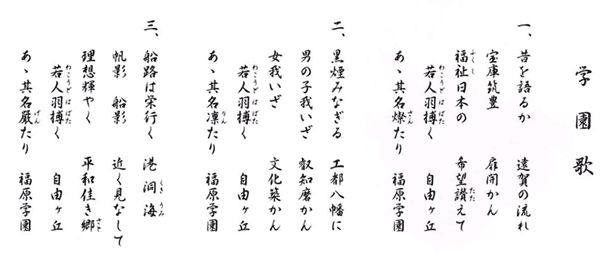 学園歌
一、昔を語るか 遠賀の流れ
宝庫筑豊 扉開かん
福祉日本の 希望讃えて
若人羽搏く 自由ヶ丘
あゝ其名燦たり 福原学園
二、黒煙みなぎる 工都八幡に
男の子我いざ 叡知磨かん
女我いざ 文化築かん
若人羽搏く 自由ヶ丘
あゝ其名凛たり 福原学園
三、船路は栄行く 港洞海
帆影 船影 近く見なして
理想輝やく 平和佳き郷
若人羽搏く 自由ヶ丘
あゝ其名厳たり 福原学園